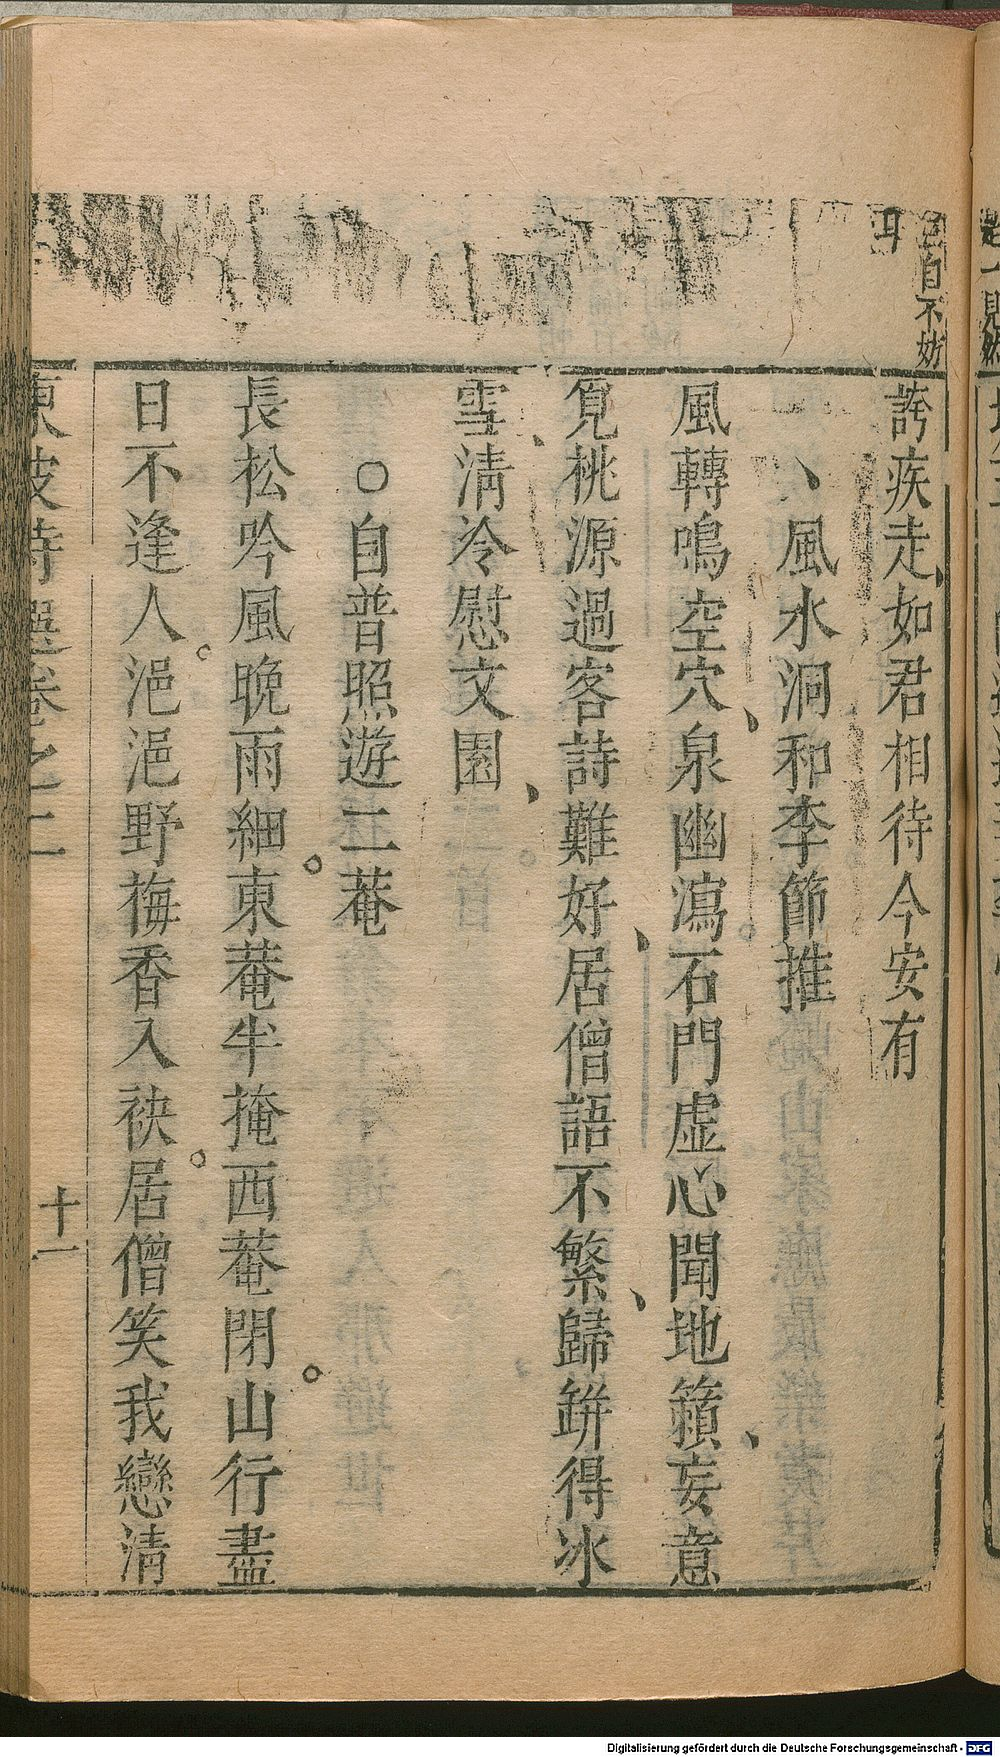 自不妨
耳
誇疾走如君相待今安有
風水洞和李節推
風轉鳴空穴泉幽瀉石門虛心聞地籟妄意
覓桃源過客詩難好居僧語不繁歸缾得冰
雪清冷慰文園
○自普照遊二菴
長松吟風晚雨細東菴半掩西菴閉山行盡
日不逢人浥浥野梅香入袂居僧笑我戀清
東坡詩選卷之二
十一
Digitalisierung gefördert durch die Deutsche Forschungsgemeinschaft - DFG